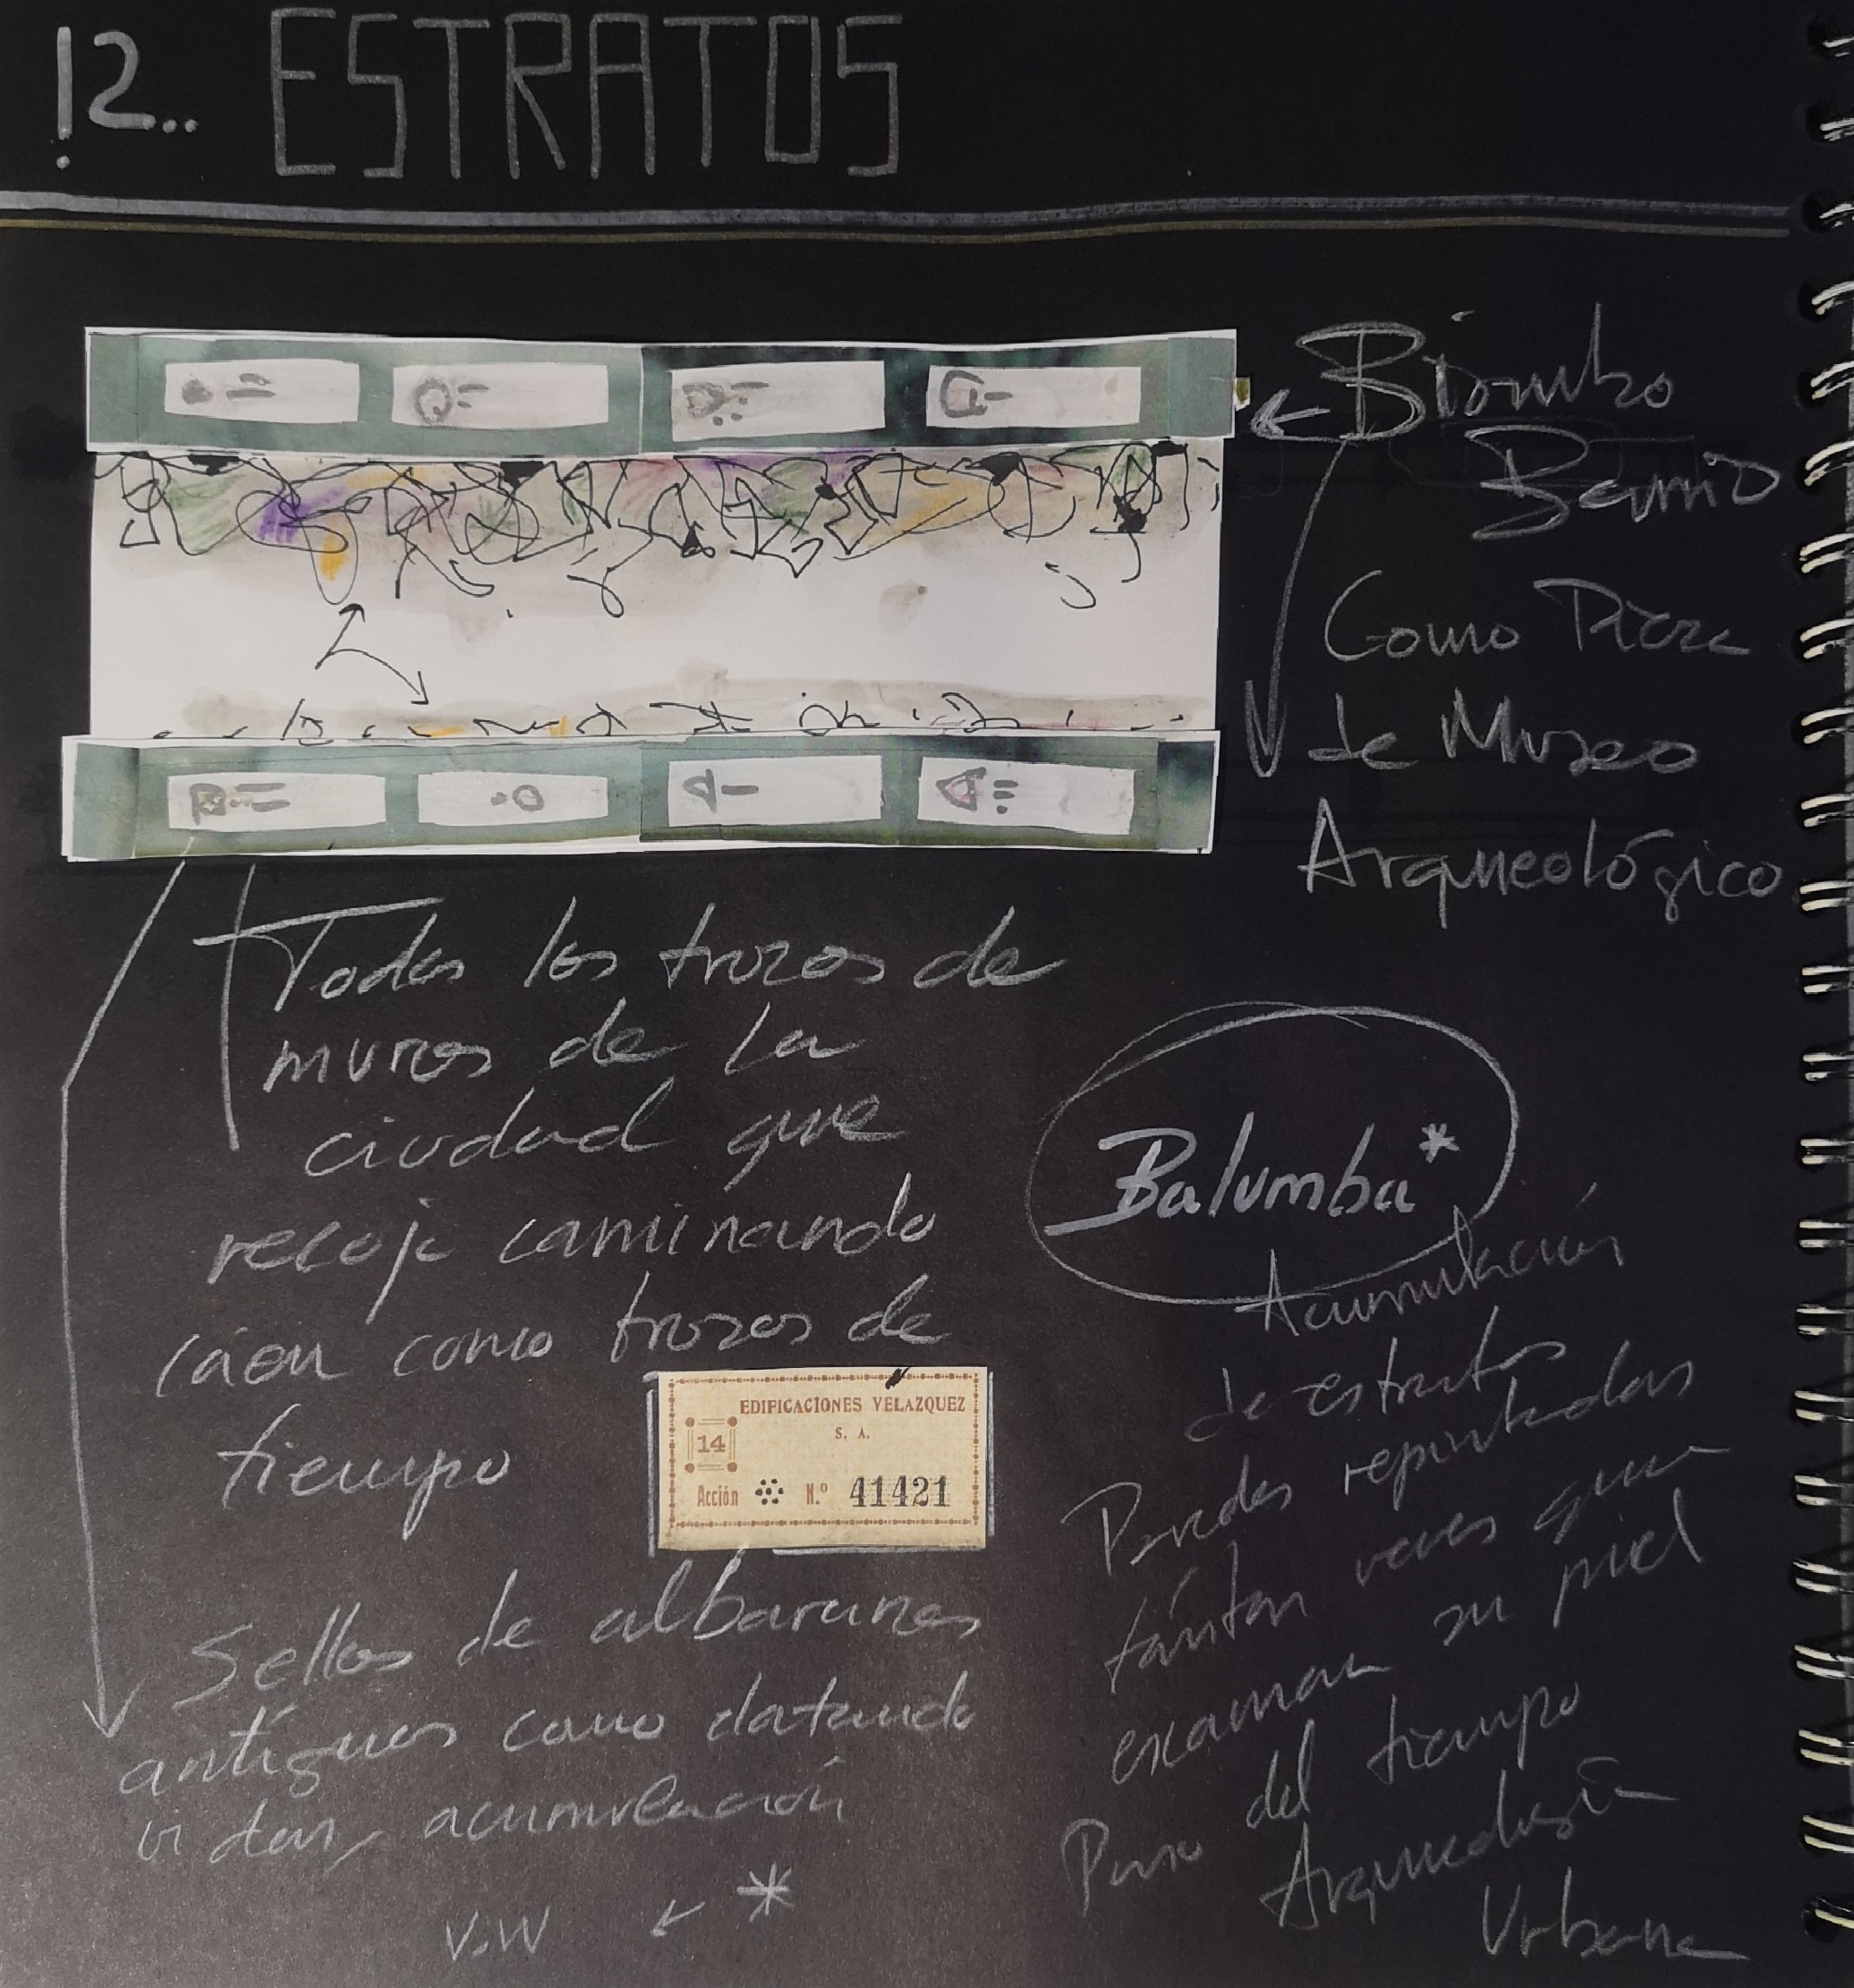 12..
ESTRATOS
Biombo
Barrio
Como Pieza
de Museo
Arqueológico
Todos los trozos de
muros de la
ciudad que
recojí caminando
cáen como trozos de
tiempo
EDIFICACIONES VELAZQUEZ
S. A.
14
Acción N.º 41421
Sellos de albaranes
antíguos como datando
vidas, acumulación
V.W
*
Balumba*
Acumulación
de estratos
Paredes repintadas
tántas veces que
escaman su piel
Paso del tiempo
Arqueología
Urbana